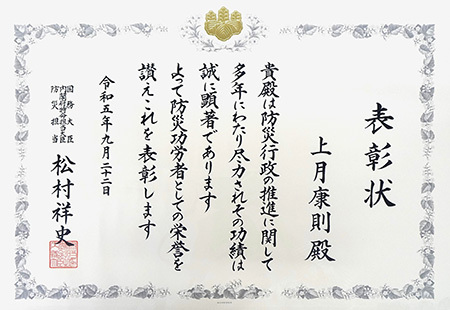 表彰状
上月康則殿
貴殿は防災行政の推進に関して
多年にわたり尽力されその功績は
誠に顕著であります
よって防災功労者としての栄誉を
讃えこれを表彰します
令和五年九月二十二日
国務大臣
内閣府特命担当大臣
防災担当
松村祥史